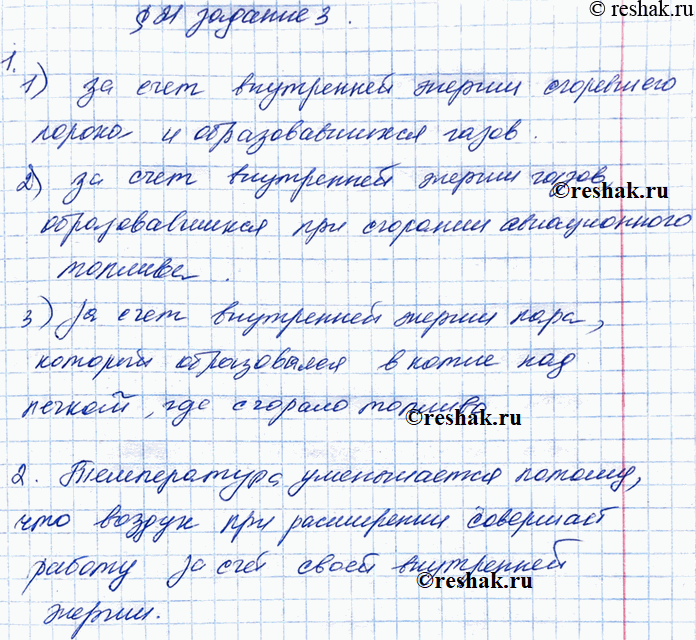 © reshak.ru
§ 21 задание 3.
1.
1) за счет внутренней энергии сгоревшего
пороха и образовавшихся газов.
2) за счет внутренней энергии газов,
©reshak.ru
образовавшихся при сгорании авиационного
топлива.
3) за счет внутренней энергии пара,
который образовался в котле над
печкой, где сгорало топливо
©reshak.ru
2. Температура уменьшается потому,
что воздух при расширении совершает
работу за счет своей внутренней
©reshak.ru
энергии.